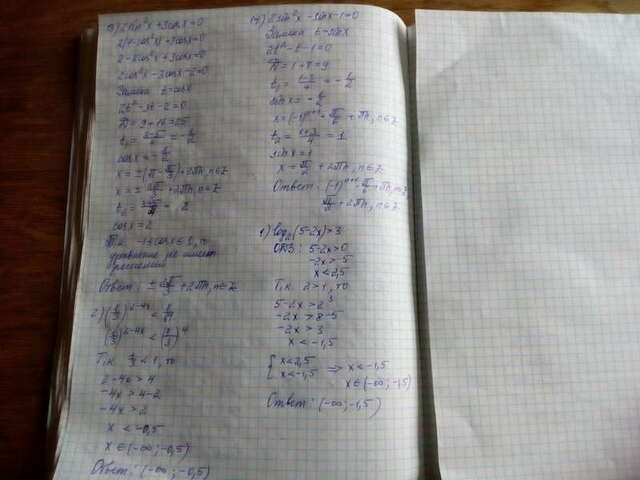 2sin²x+3cosx=0
2(1-cos²x)+3cosx=0
2-2cos²x+3cosx=0
2cos²x-3cosx-2=0
Замена t=cosx
2t²-3t-2=0
D=9+16=25
t₁=(3-5)/4=-1/2
cosx=-1/2
x=±(π-π/3)+2πn, n∈Z
x=±2π/3+2πn, n∈Z
t₂=(3+5)/4=2
cosx=2
Т.к. -1≤cosx≤1, то
уравнение не имеет
Ответ: ±2π/3+2πn, n∈Z
2) (1/3)^(2-4x) < 1/81
(1/3)^(2-4x) < (1/3)^4
Т.к. 1/3<1, то
2-4x>4
-4x>4-2
-4x>2
x<-0,5
x∈(-∞;-0,5)
Ответ: (-∞;-0,5)
2sin²x-sinx-1=0
Замена t=sinx
2t²-t-1=0
D=1+8=9
t₁=(1-3)/4=-1/2
sinx=-1/2
x=(-1)^(n+1)·π/6+πn, n∈Z
t₂=(1+3)/4=1
sinx=1
x=π/2+2πn, n∈Z
Ответ: (-1)^(n+1)·π/6+πn, n∈Z
π/2+2πn, n∈Z
1) log₂(5-2x)>3
ОДЗ: 5-2x>0
-2x>-5
x<2,5
Т.к. 2>1, то
5-2x>2³
-2x>8-5
-2x>3
x<-1,5
{x<2,5
x<-1,5 ⇒ x<-1,5
x∈(-∞;-1,5)
Ответ: (-∞;-1,5)